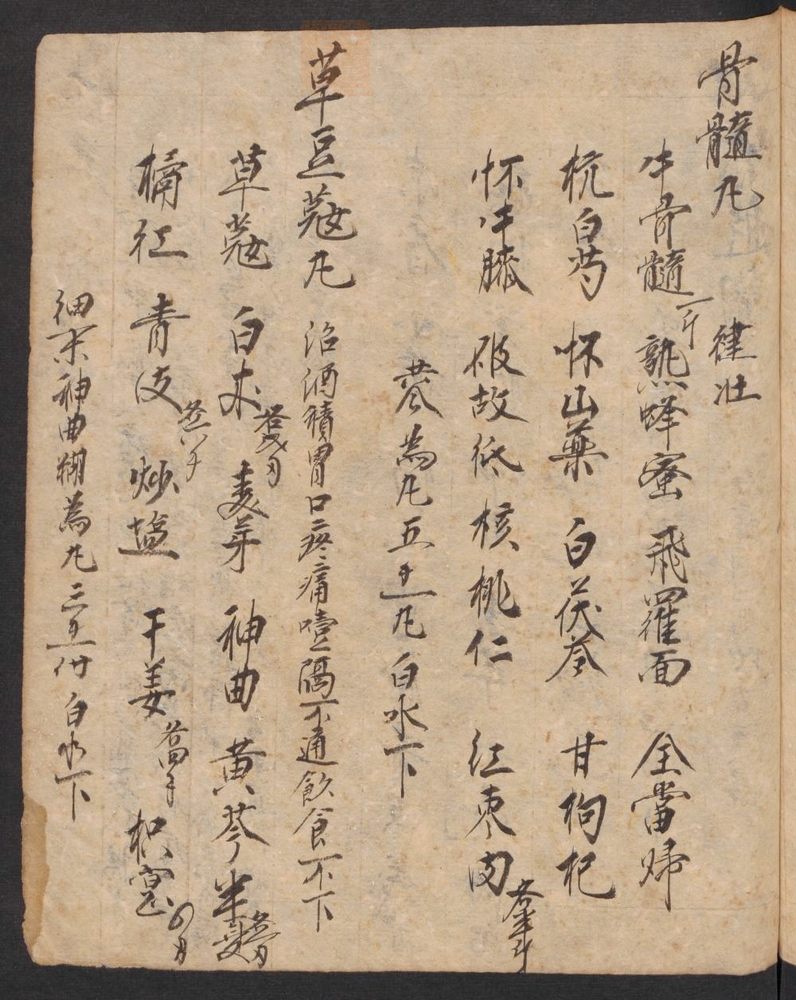 骨髓丸 健壮
牛骨髓一斤 熟蜂蜜 飛羅面 全當歸
杭白芍 怀山藥 白茯苓 甘枸杞
怀牛膝 破故纸 核桃仁 红枣肉各半斤
共為丸五十丸白水下
草豆蔻丸 治酒積胃口疼痛噎膈不通飲食不下
草蔻 白术各 麦芽 神曲 黄芩 半夏各
橘红 青皮 炒塩 干姜 枳實
细末神曲糊為丸三五十付白水下